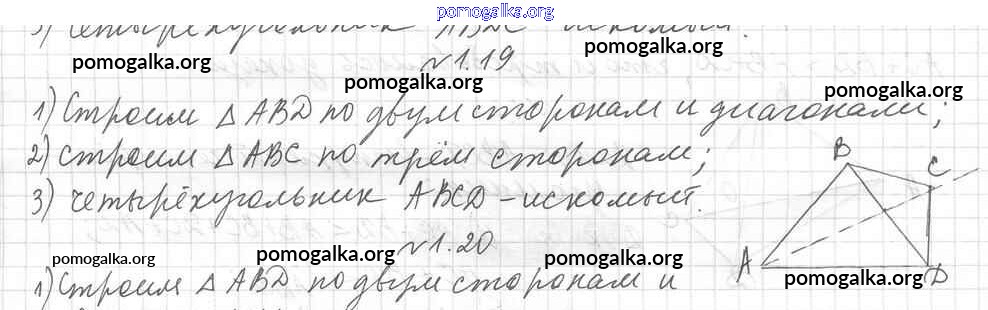 pomogalka.org
3) четырёхугольник ABDC искомый.
pomogalka.org
pomogalka.org
№1.19
1) Строим △ ABD по двум сторонам и диагонали;
pomogalka.org
pomogalka.org
2) строим △ ABC по трём сторонам;
3) четырёхугольник ABCD - искомый.
B
C
A
D
№1.20
pomogalka.org
pomogalka.org
pomogalka.org
pomogalka.org
1) Строим △ ABD по двум сторонам и